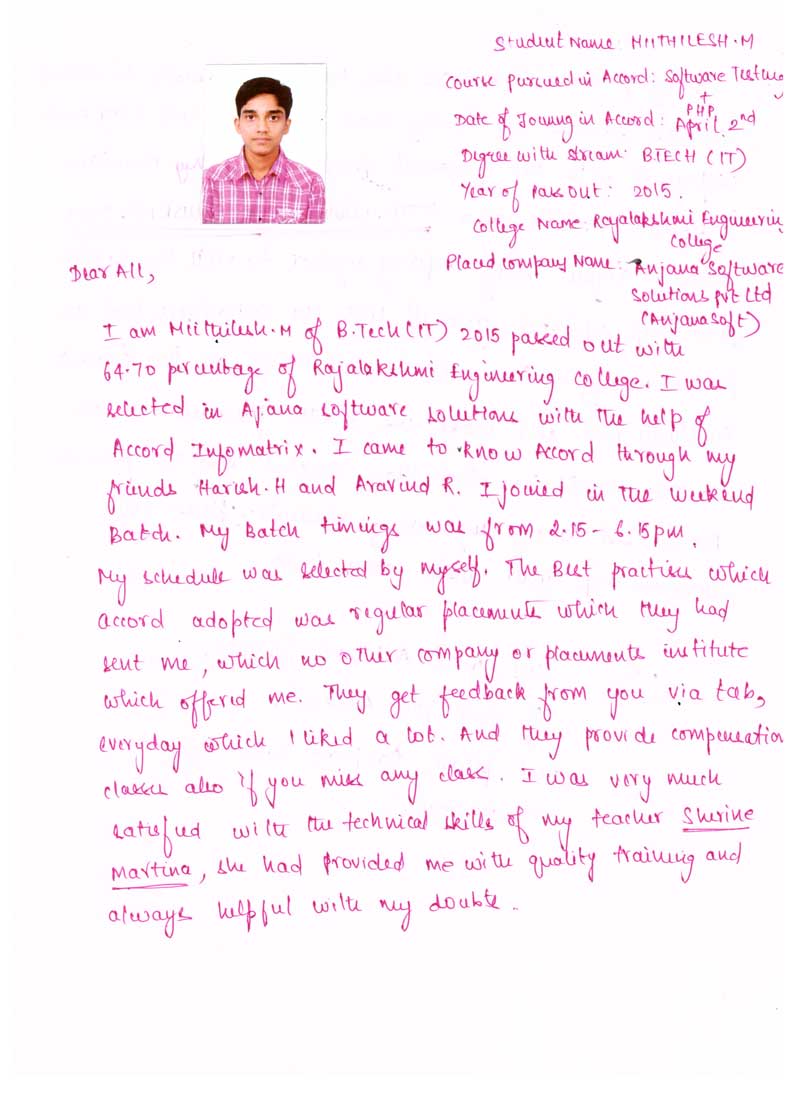 Student Name: MIITHILESH.M
Course pursued in Accord: Software Testing
+
PHP
Date of Joining in Accord: April 2nd
Degree with stream: B.TECH (IT)
Year of Pass Out: 2015.
College Name: Rajalakshmi Engineering
College
Placed Company Name: Anjana Software
Solutions Pvt Ltd
(AnjanaSoft)
Dear All,
I am Miithilesh.M of B.Tech (IT) 2015 passed out with
64.70 percentage of Rajalakshmi Engineering College. I was
selected in Ajana software solutions with the help of
Accord Infomatrix. I came to know Accord through my
friends Harish.H and Aravind R. I joined in the weekend
Batch. My Batch timings was from 2.15 - 6.15pm.
My schedule was selected by myself. The Best practise which
accord adopted was regular placements which they had
sent me, which no other company or placements institute
which offered me. They get feedback from you via tab,
everyday which I liked a lot. And they provide compensation
classes also if you miss any class. I was very much
satisfied with the technical skills of my teacher Sherine
Martina, she had provided me with quality training and
always helpful with my doubts.